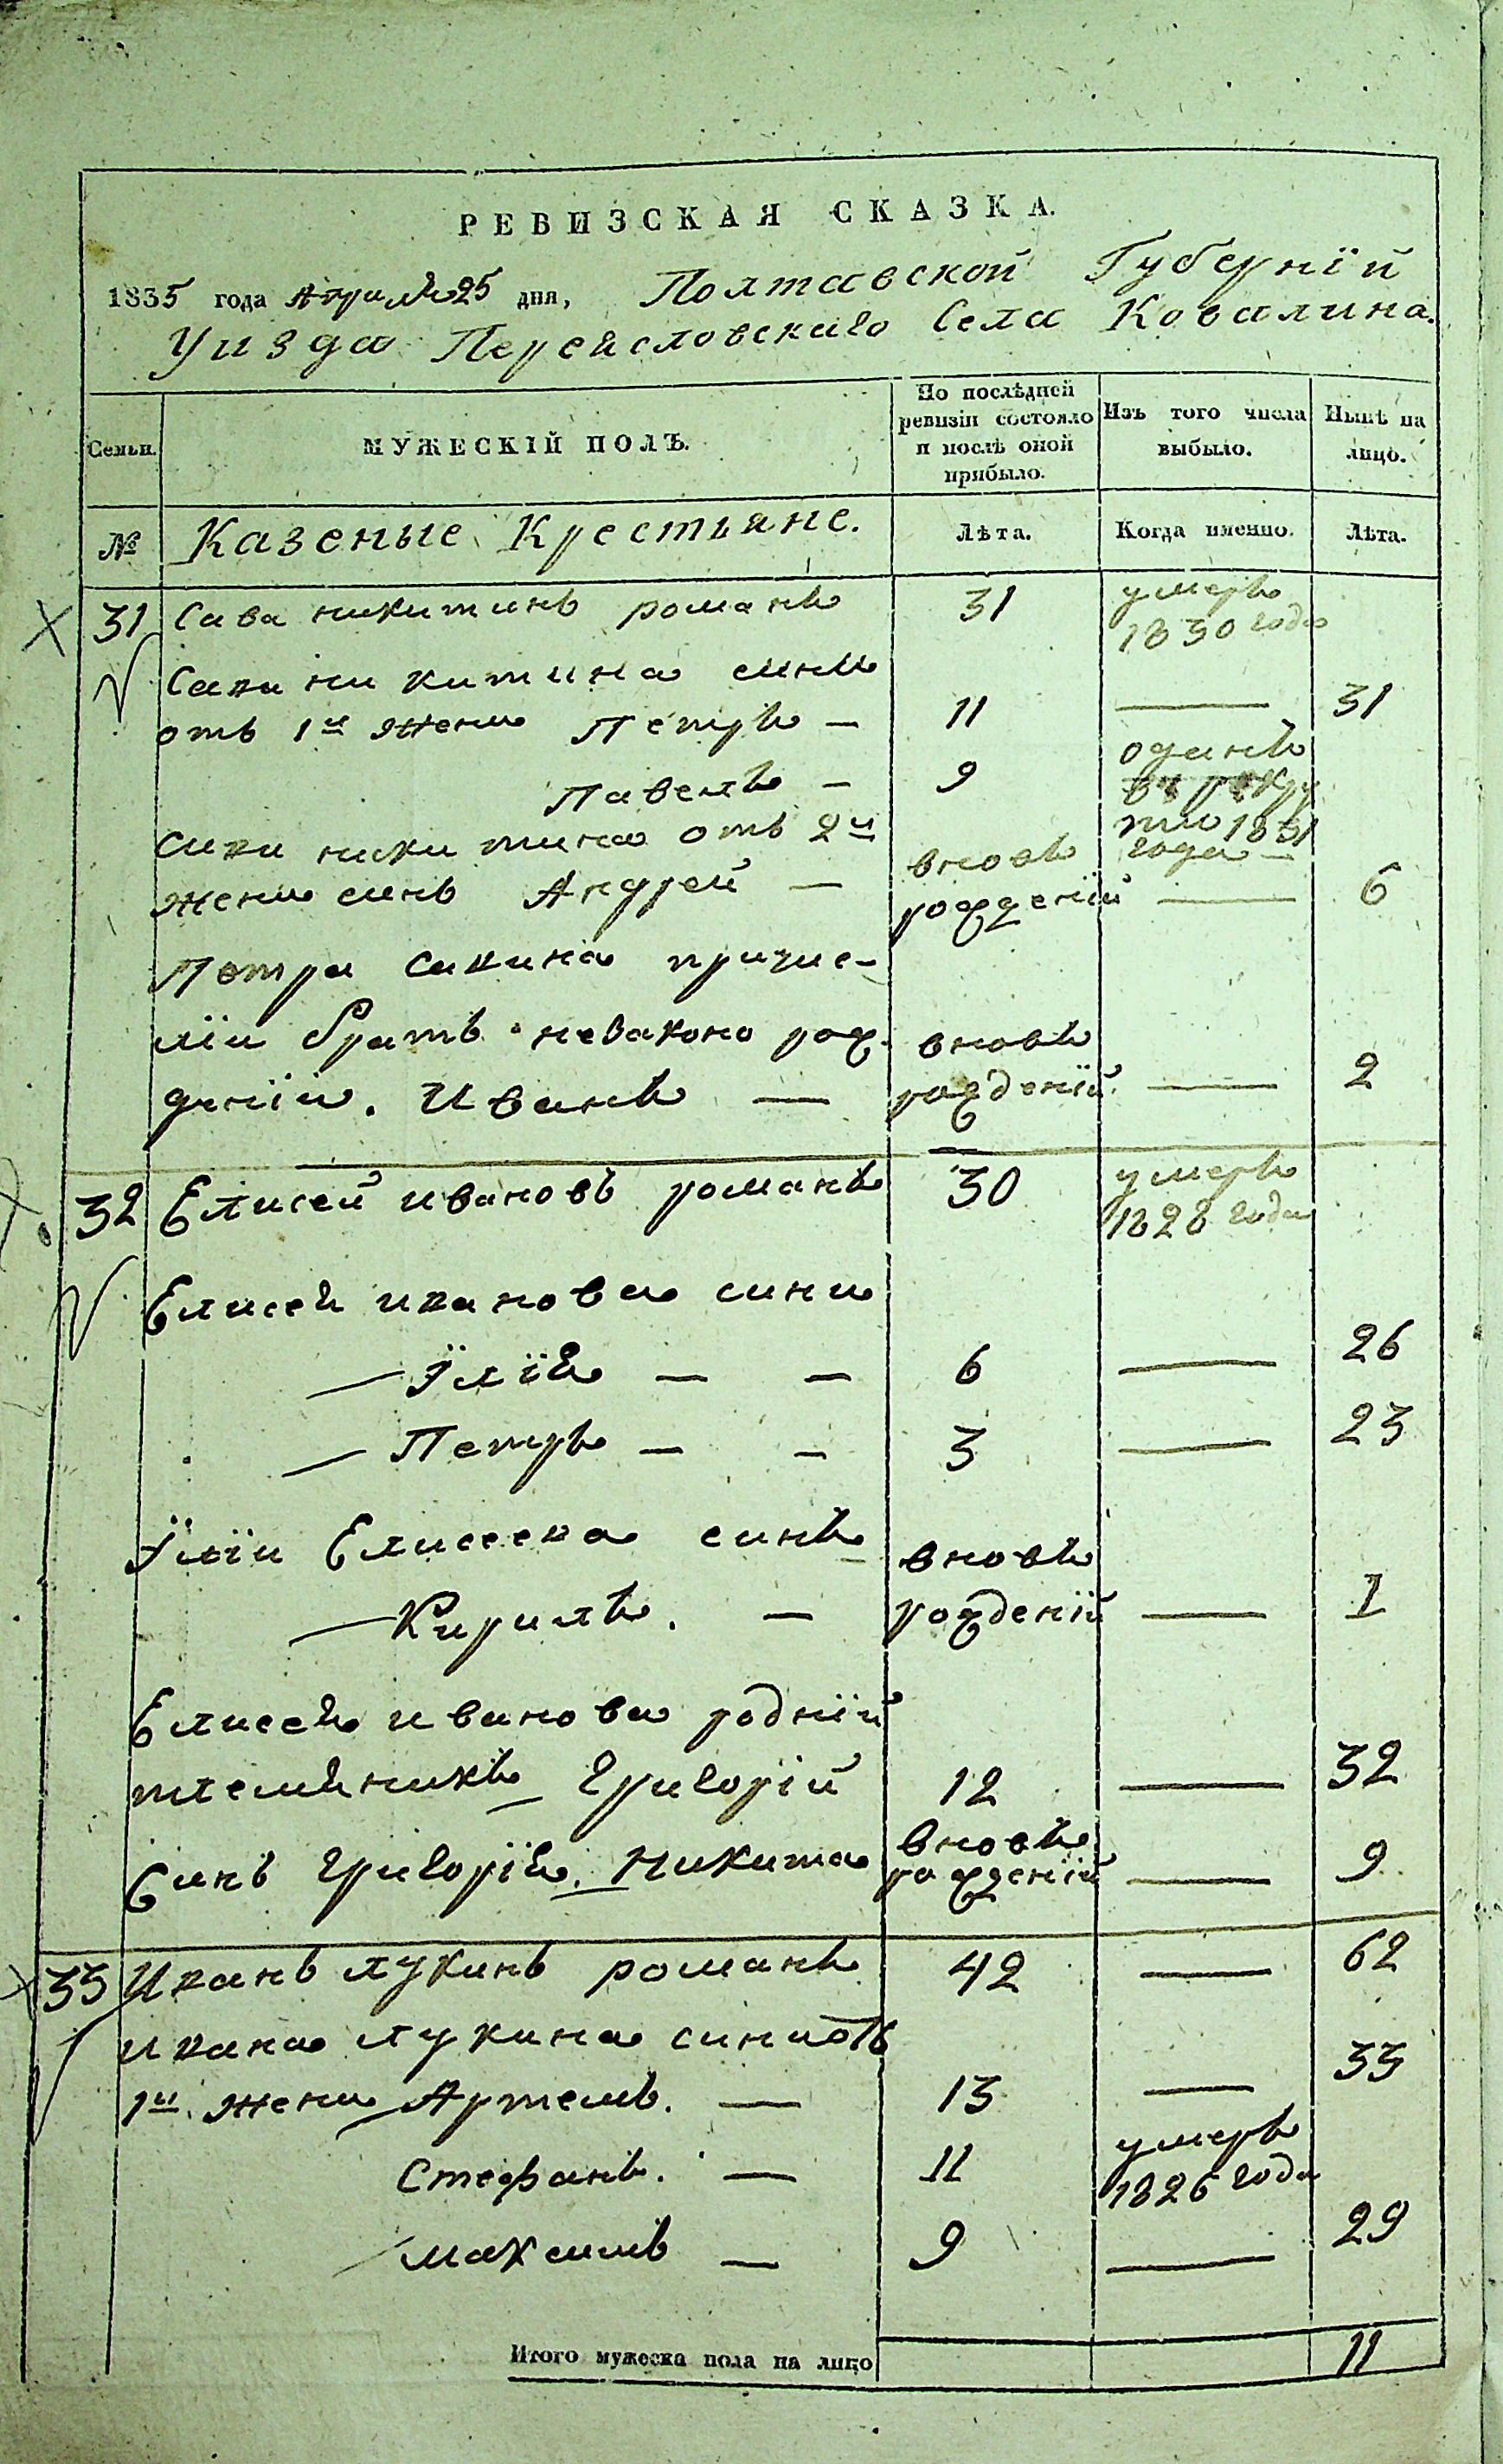 РЕВИЗСКАЯ СКАЗКА.
1835 года Априля 25 дня, Полтавской Губерніи
Уизда Переясловскаго Села Ковалина.
Семьи.
МУЖЕСКІЙ ПОЛЪ.
По послѣдней ревизіи состояло и послѣ оной прибыло.
Изъ того числа выбыло.
Нынѣ на лицо.
№ Казеные Крестьяне. Лѣта. Когда именно. Лѣта.
31 Сава никитинъ романъ 31 умеръ
1830 года
Сави никитина сини
отъ 1й жени Петръ — 11 — 31
Павелъ — 9 оданъ
в рекру
ти 1831
года —
Сави никитина отъ 2й вновь
жени синъ Андрей — рожденій — 6
Петра Савина причис-
лін братъ незаконо рож- вновь
деній. Иванъ — рожденій — 2
32 Елисей ивановъ романъ 30 умеръ
1828 года
Елисея иванова сини
— Ілія — — 6 — 26
— Петръ — — 3 — 23
Іліи Елисеева синъ вновь
— Кирилъ. — рожденій — 1
Елисея иванова родній
племяникъ Григорій 12 — 32
Синъ Григорія. Никита вновь рожденій — 9
33 Иванъ лукинъ романъ 42 — 62
ивана лукина сини отъ
1й жени Артемъ. — 13 — 33
Стефанъ. — 11 умеръ
1826 года
максимъ — 9 — 29
Итого мужеска пола на лицо 11